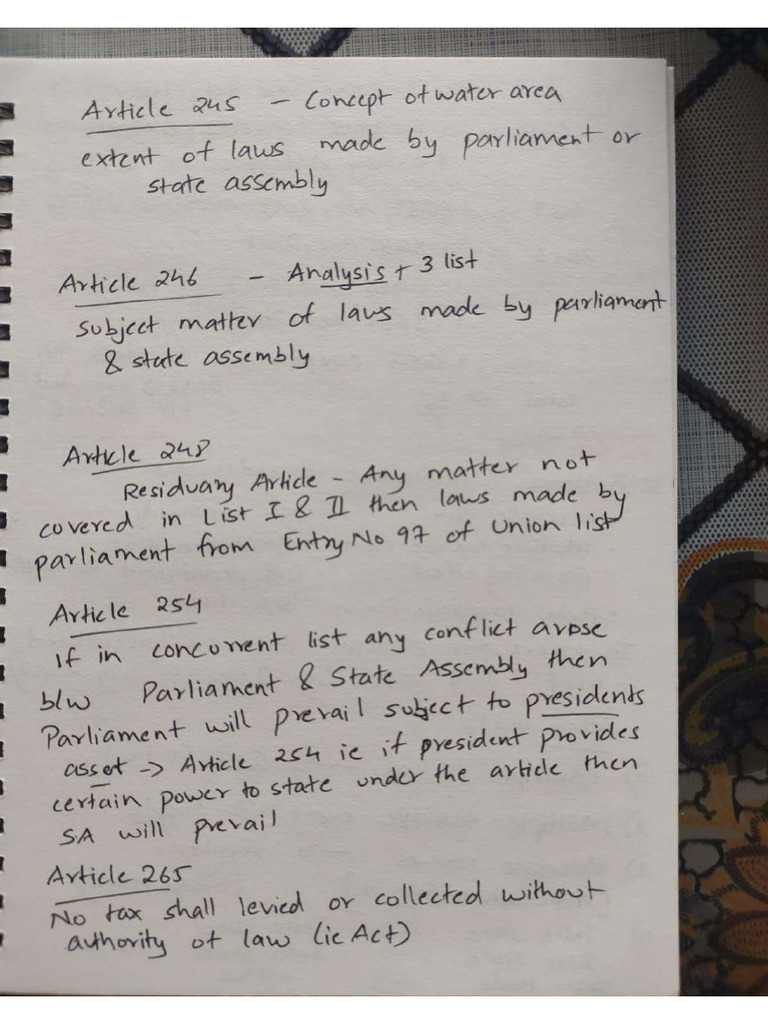 Article 245 - Concept of water area
extent of laws made by parliament or
state assembly
Article 246 - Analysis + 3 list
subject matter of laws made by parliament
& state assembly
Article 248
Residuary Article - Any matter not
covered in List I & II then laws made by
parliament from Entry No 97 of Union list
Article 254
If in concurrent list any conflict arose
b/w Parliament & State Assembly then
Parliament will prevail subject to presidents
asset -> Article 254 ie if president provides
certain power to state under the article then
SA will prevail
Article 265
No tax shall levied or collected without
authority of law (ie Act)